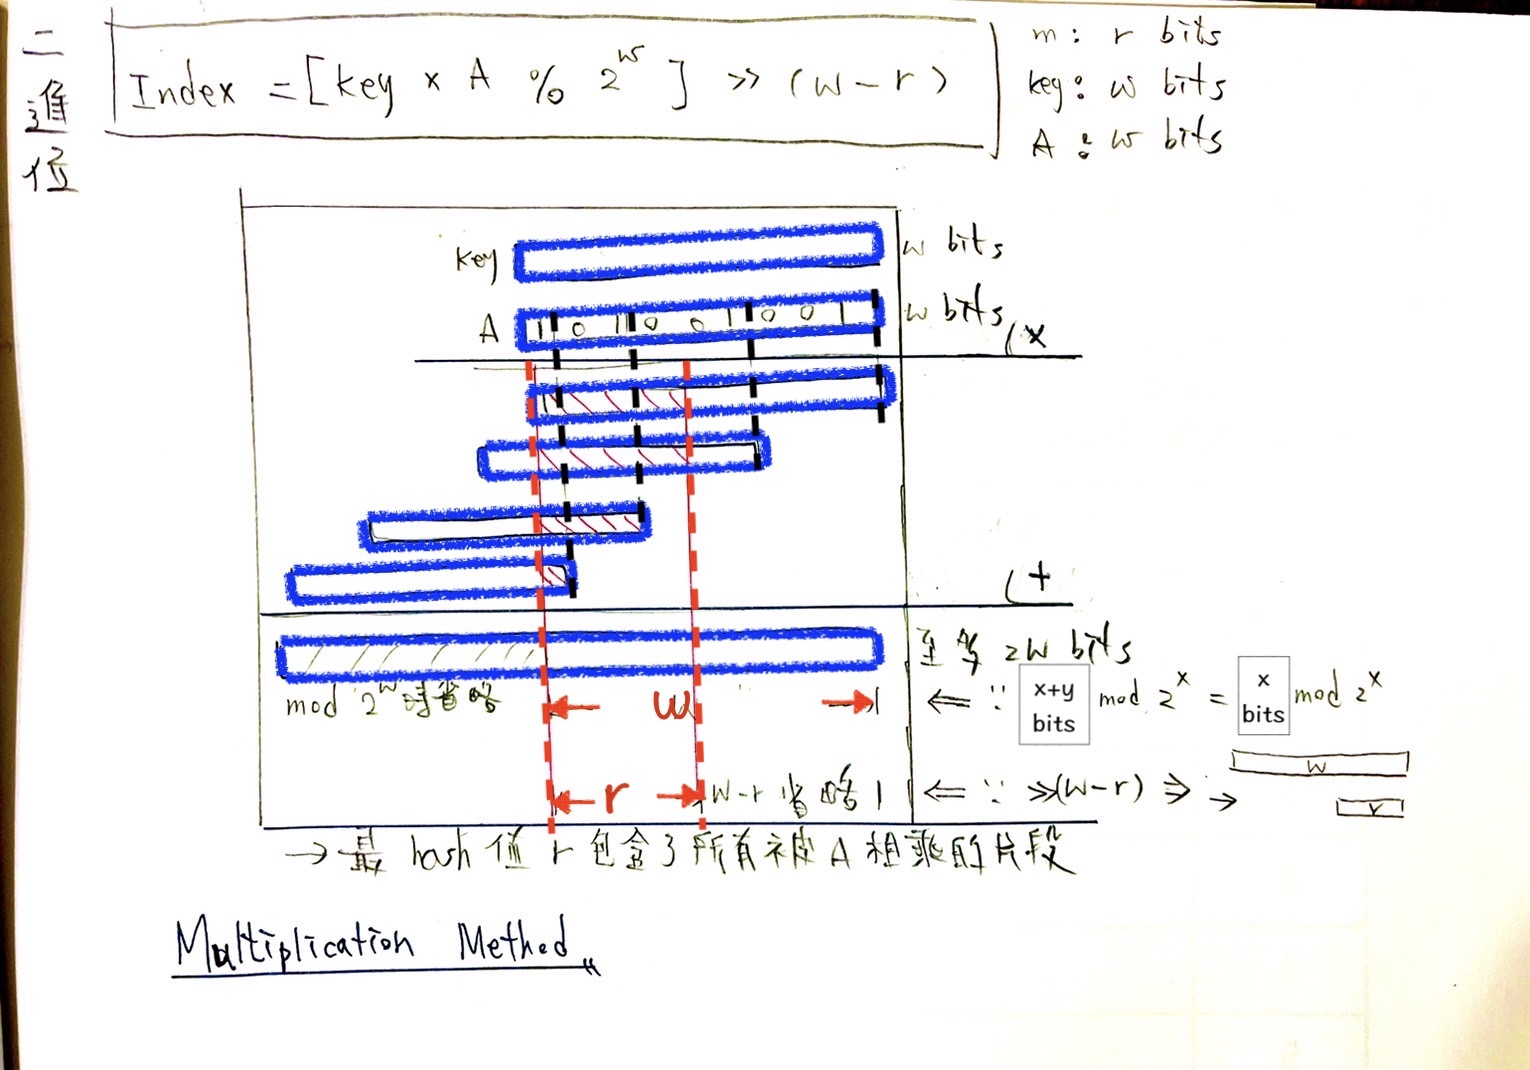 二進位
Index = [ key x A % 2^w ] >> (w-r)
m: r bits
key: w bits
A: w bits
key w bits
A 1 0 1 0 0 1 0 0 1 w bits
(x
(+
至多 2w bits
mod 2^w 時省略 w <= ∵ x+y bits mod 2^x = x bits mod 2^x
w
r w-r 省略 <= ∵ >>(w-r) => →
r
→ 最 hash 值 r 包含了所有被 A 相乘的片段
Multiplication Method